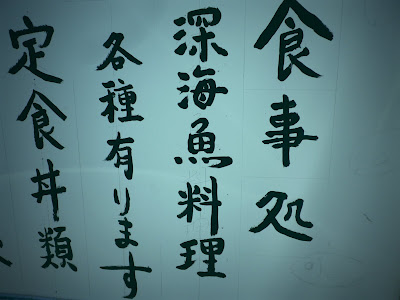 食事処
深海魚料理
各種有ります
定食丼類